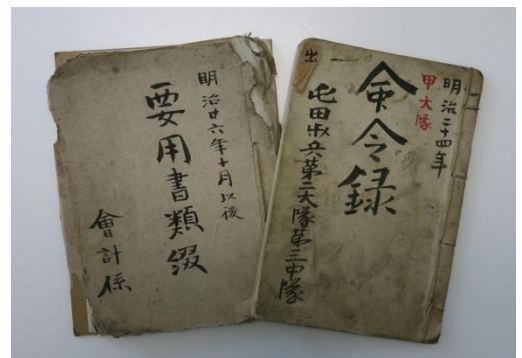 明治廿六年十月以後
要用書類綴
會計係
明治二十四年
甲大隊
命令録
屯田歩兵第二大隊第三中隊